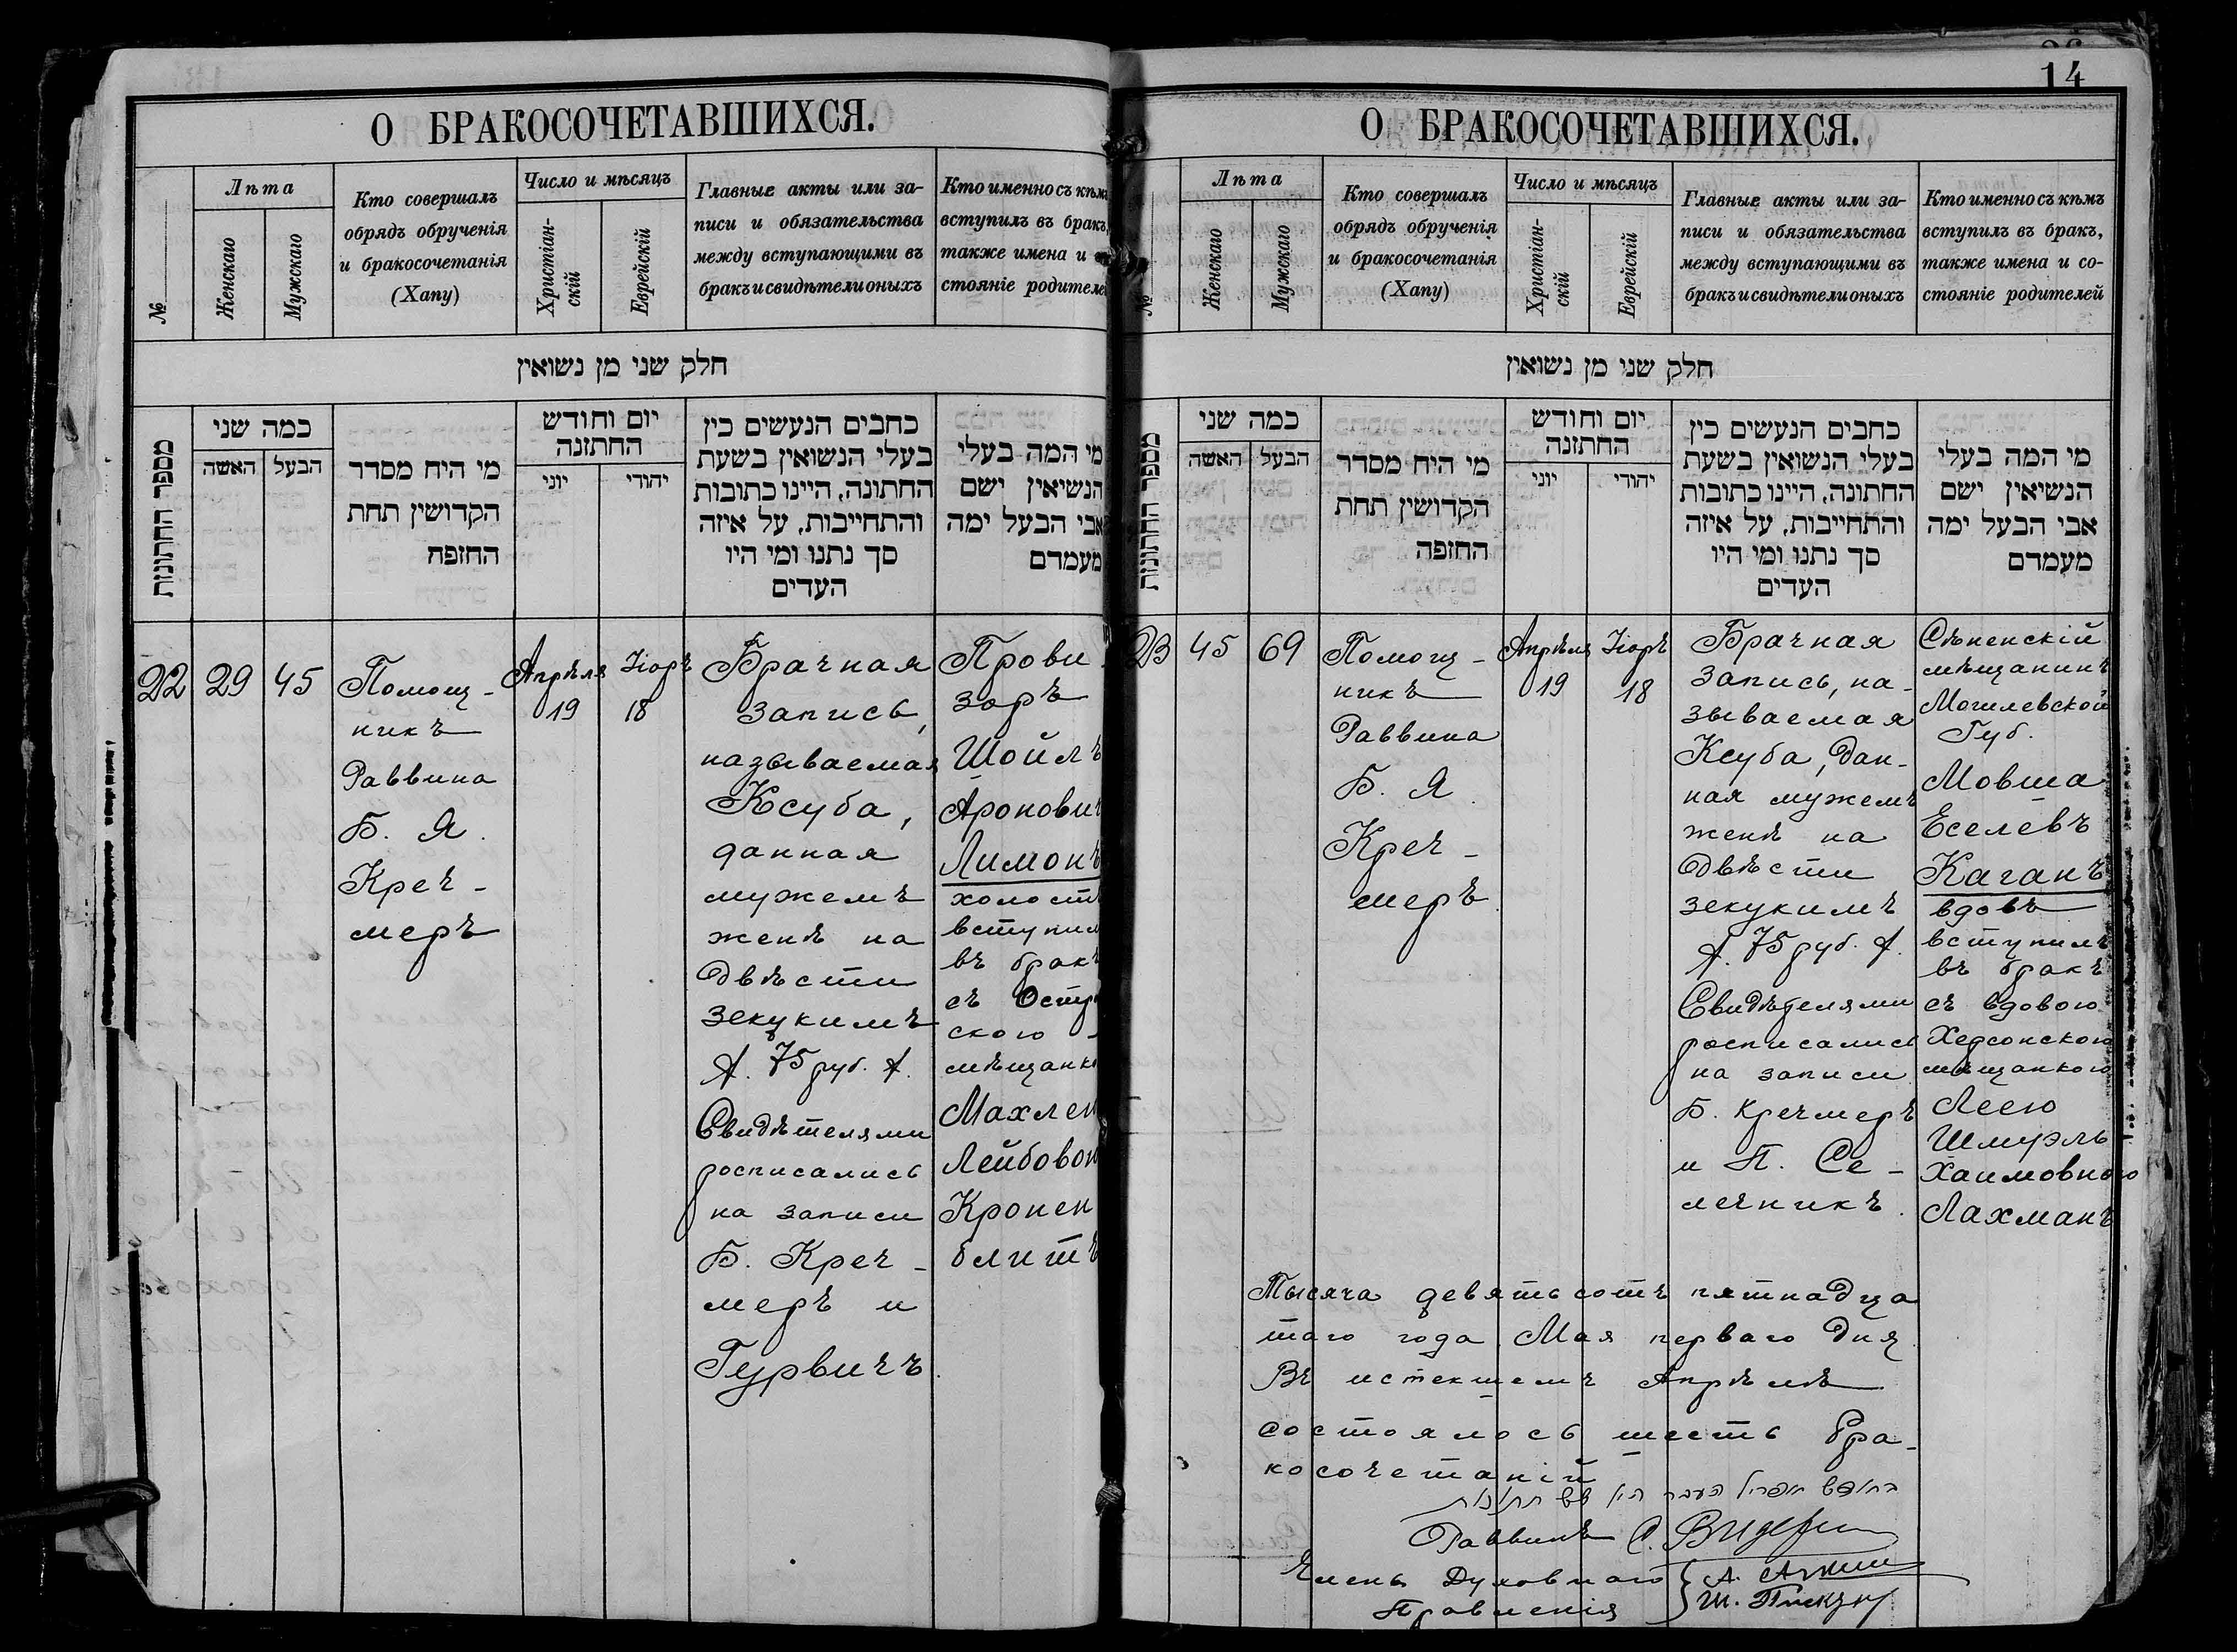 О БРАКОСОЧЕТАВШИХСЯ.
№
Лѣта
Женскаго
Мужскаго
Кто совершалъ
обрядъ обрученія
и бракосочетанія
(Хапу)
Число и мѣсяцъ
Христіан-
скій
Еврейскій
Главные акты или за-
писи и обязательства
между вступающими въ
бракъ и свидѣтели оныхъ
Кто именно съ кѣмъ
вступилъ въ бракъ,
также имена и
стояніе родителей
חלק שני מן נשואין
מספר החתונות
כמה שני
האשה
הבעל
מי היח מסדר
הקדושין תחת
החזפח
יום וחודש
החתזנה
יוני
יהודי
כחבים הנעשים כין
בעלי הנשואין בשעת
החתונה, היינו כתובות
והתחייבות, על איזה
סך נתנו ומי היו
העדים
מי המה בעלי
הנשיאין ישם
אבי הבעל ימה
מעמדם
22
29
45
Помощ-
никъ
Раввина
Б. Я.
Креч-
меръ
Апрѣля
19
Іоръ
18
Брачная
запись,
называемая
Ксуба,
данная
мужемъ
женѣ на
двѣсти
зекукимъ
А. 75 руб. А.
Свидѣтелями
росписались
на записи
Б. Креч-
меръ и
Гурвичъ.
Прови
зоръ
Шойлъ
Аронович
Лимонъ
холостъ
вступил
въ бракъ
съ Остр
ского
мѣщанко
Махлен
Лейбовон
Кронен
блитъ
14
О БРАКОСОЧЕТАВШИХСЯ.
№
Лѣта
Женскаго
Мужскаго
Кто совершалъ
обрядъ обрученія
и бракосочетанія
(Хапу)
Число и мѣсяцъ
Христіан-
скій
Еврейскій
Главные акты или за-
писи и обязательства
между вступающими въ
бракъ и свидѣтели оныхъ
Кто именно съ кѣмъ
вступилъ въ бракъ,
также имена и со-
стояніе родителей
חלק שני מן נשואין
מספר החתונות
כמה שני
האשה
הבעל
מי היח מסדר
הקדושין תחת
החזפה
יום וחודש
החתזנה
יוני
יהודי
כחבים הנעשים כין
בעלי הנשואין בשעת
החתונה, היינו כתובות
והתחייבות, על איזה
סך נתנו ומי היו
העדים
מי המה בעלי
הנשיאין ישם
אבי הבעל ימה
מעמדם
23
45
69
Помощ-
никъ
Раввина
Б. Я.
Креч-
меръ
Апрѣля
19
Іоръ
18
Брачная
запись, на-
зываемая
Ксуба, дан-
ная мужемъ
женѣ на
двѣсти
зекукимъ
А. 75 руб. А.
Свидѣтелями
росписались
на записи
Б. Кречмеръ
и П. Се-
лечникъ.
Сѣненскій
мѣщанинъ
Могилевской
Губ.
Мовша
Еселевъ
Каганъ
вдовъ
вступилъ
въ бракъ
съ вдовою
Херсонскою
мѣщанкою
Леею
Шмуэль
Хаимовною
Лахманъ
Тысяча девятьсотъ пятнадца
таго года Мая перваго дня
Въ истекшемъ Апрѣлѣ
состоялось шесть бра-
косочетаній
Раввинъ
Члены Духовнаго
Правленія